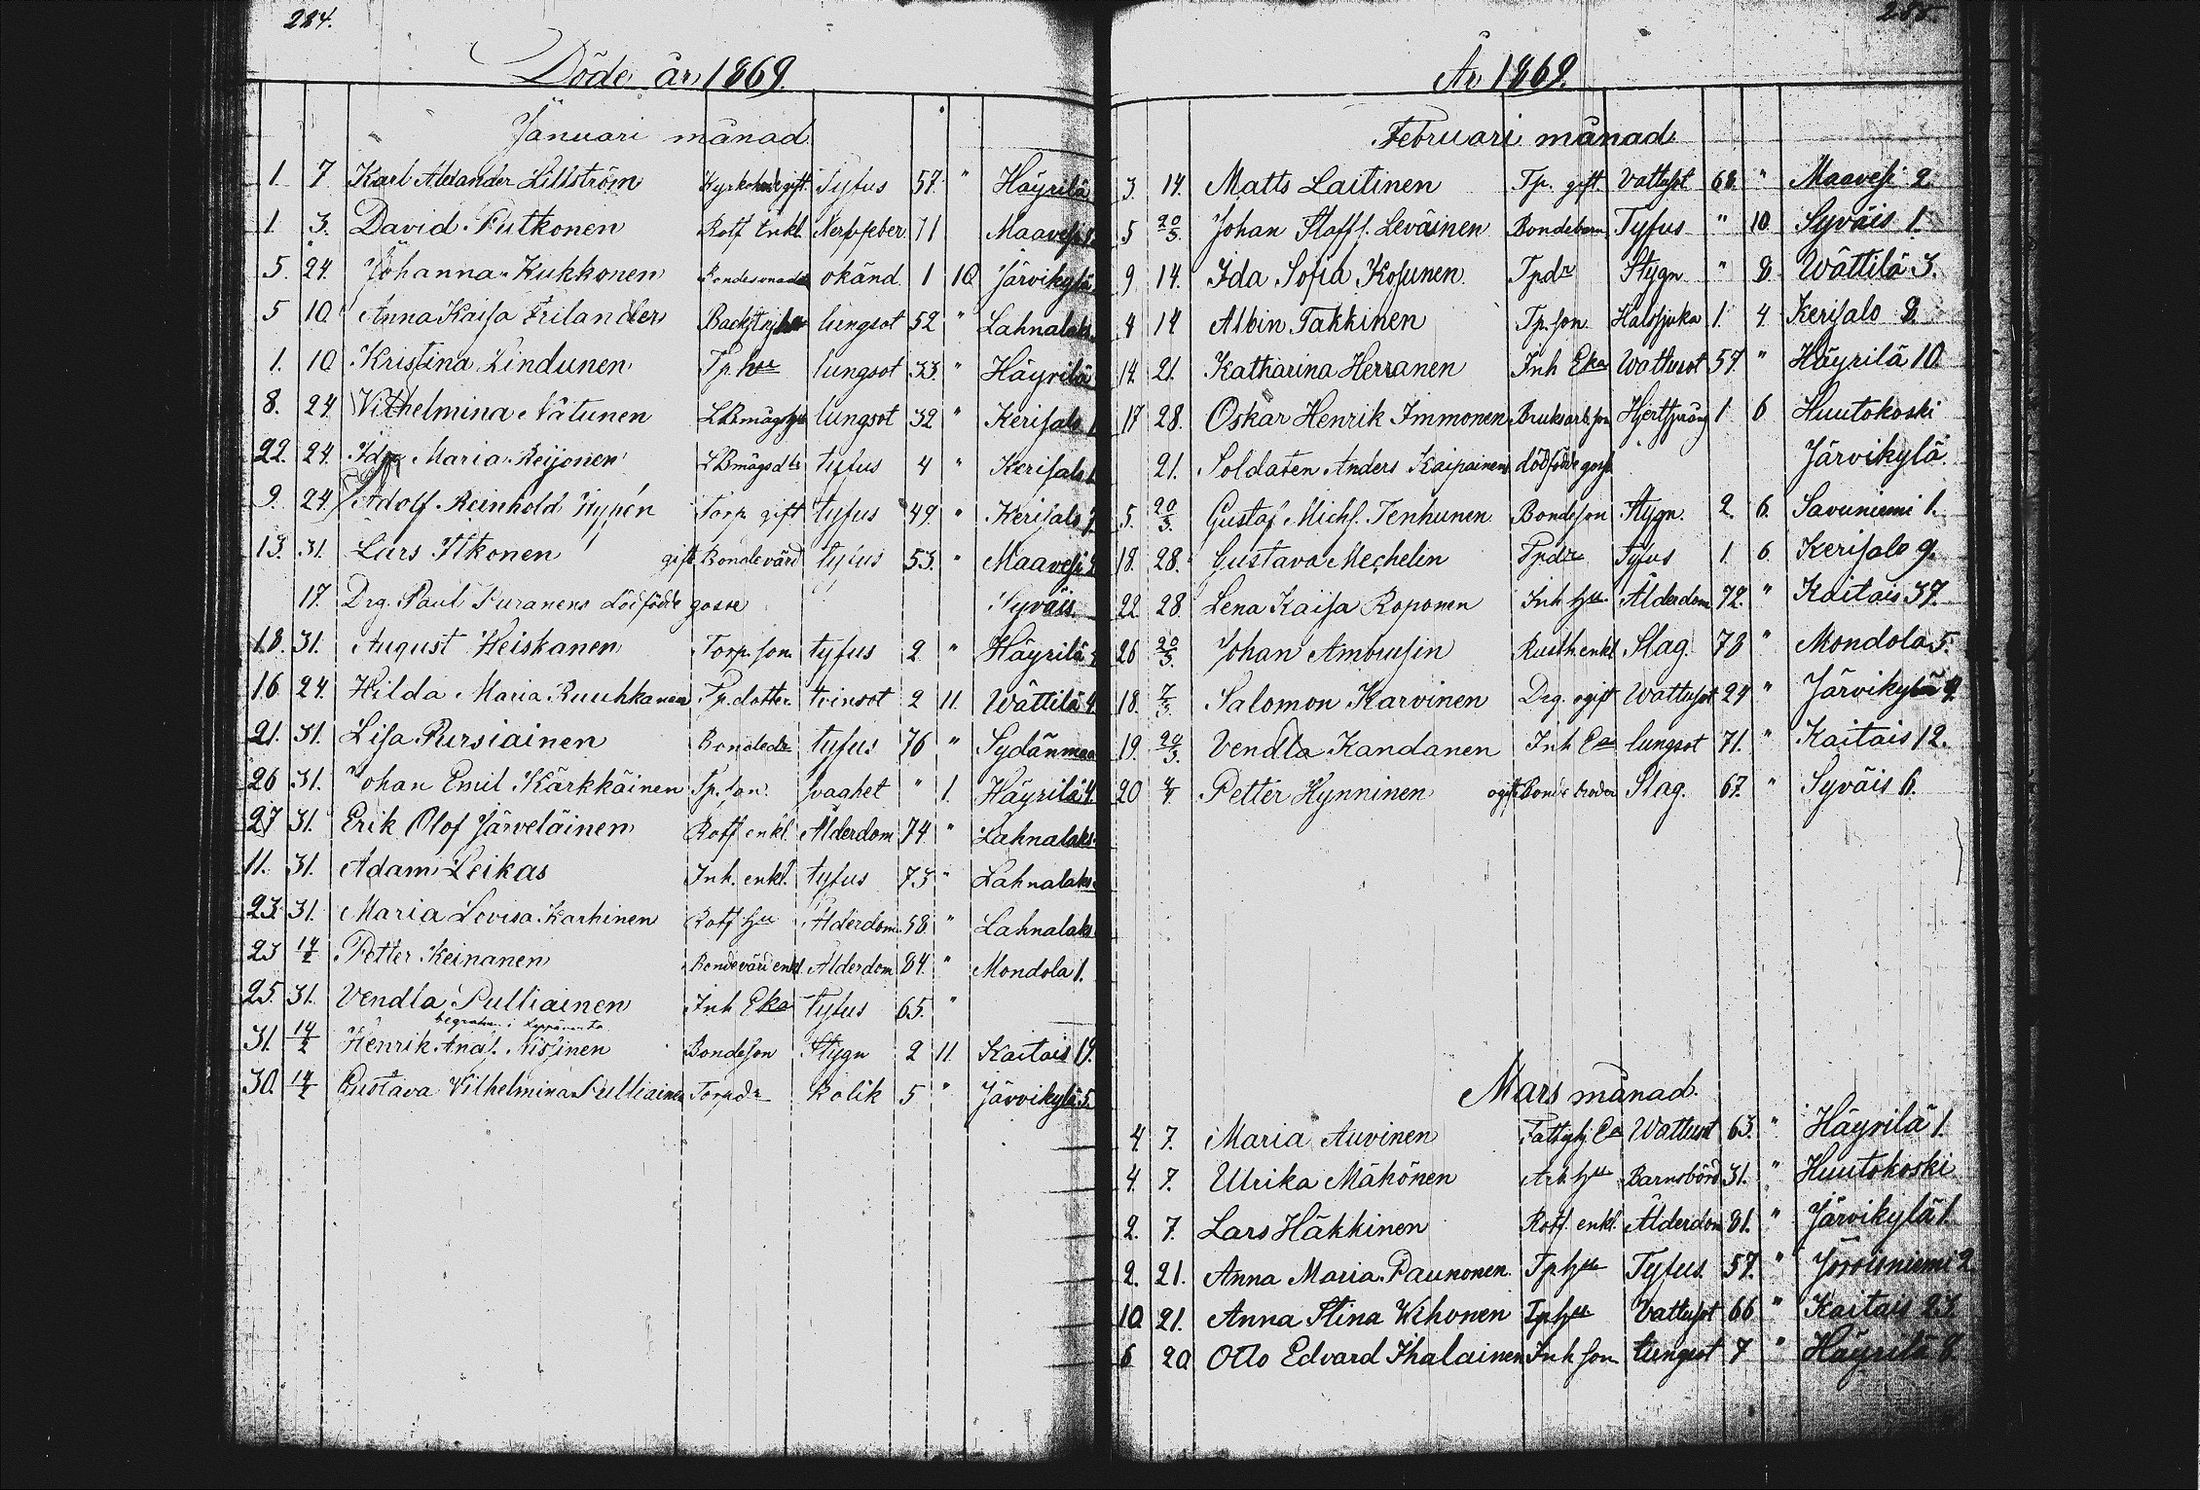 224.
Döde år 1869.
Januari månad
1. 7 Karl Alexander Lillström Kyrkoherde gift Tyfus 57 " Häyrilä
1. 3. David Putkonen Rotf Enkl. Nervfeber 71 Maavesi 1
5. 24. Johanna Kukkonen okänd 1 10 Järvikylä
5 10 Anna Kaisa Frilander lungsot 52 " Lahnalaks
1. 10 Kristina Lindunen Tp. hu lungsot 33. " Häyrilä
8. 24. Vilhelmina Nätunen lungsot 32 " Kerisalo 1
22. 24. Ida Maria Reijonen tyfus 4 " Kerisalo 1
9. 24. Adolf Reinhold Nypén Torp gift tyfus 49. " Kerisalo 7
13. 31. Lars Itkonen gift Bondevärd tyfus 53. " Maavesi 2
17. Drg. Paul Puranens dödfödde gosse Syväis.
18. 31. August Heiskanen Torp. son tyfus 2 " Häyrilä
16 24. Hilda Maria Ruuhkanen Tp. dotter tvinsot 2 11. Wättilä 4
21. 31. Lisa Pursiainen tyfus 76 " Sydänmaa
26 31. Johan Emil Kärkkäinen Tp. son svaghet " 1. Häyrilä 4.
27 31. Erik Olof Järveläinen Rotf enkl. Ålderdom 74 " Lahnalaks
11. 31. Adam Leikas Inh. enkl. tyfus 73 " Lahnalaks
23. 31. Maria Lovisa Karhinen Rotf hu Ålderdom 58. " Lahnalaks
23 14/2 Petter Keinanen Bondevärd enkl. Ålderdom 84. " Mondola 1.
25. 31. Vendla Pulliainen Inh Eka Tyfus 65. "
begraven i
31. 14/2 Henrik And. Nissinen Bondeson Stygn 2 11. Kaitais 19.
30. 14/2 Gustava Vilhelmina Pulliainen Torpdr Kolik 5 " Järvikylä 5.
225.
År 1869.
Februari månad
3 14. Matts Laitinen Tp. gift Vattusot 68. " Maavesi 2.
5 20/3. Johan Staff. Leväinen Bondebarn Tyfus " 10 Syväis 1.
9 14. Ida Sofia Kosunen Tpdr Stygn " 8. Wättilä 3.
4 14 Albin Takkinen Tp. son Halssjuka 1. 4. Kerisalo 8.
14. 21. Katharina Herranen Inh Eka Wattusot 57. " Häyrilä 10.
17 28. Oskar Henrik Immonen Bruksarb. son Hjertsprång 1 6 Huutokoski
21. Soldaten Anders Kaipainens dödfödde gosse Järvikylä.
5. 20/3. Gustaf Michs. Tenhunen Bondeson Stygn. 2. 6. Savuniemi 1.
18. 28. Gustava Mechelin Tpdr Tyfus 1. 6. Kerisalo 9.
22 28 Lena Kaisa Roponen Inh hu Ålderdom 72. " Kaitais 37.
26 20/3. Johan Ambrusin Rusth enkl Slag. 78 " Mondola 5.
18. 7/3. Salomon Karvinen Drg. ogift Wattusot 24 " Järvikylä 9
19. 20/3. Vendla Kandanen Inh Ea lungsot 71. " Kaitais 12.
20 4/4 Petter Hynninen ogift Bonde broder Slag. 67. " Syväis 6.
Mars månad.
4 7. Maria Auvinen Fattighj Ea Wattusot 63. " Häyrilä 1.
4. 7. Ulrika Mähönen Arb. hu Barnsbörd 31. " Huutokoski
2. 7. Lars Häkkinen Rotf. enkl. Ålderdom 81. " Järvikylä 1.
2. 21. Anna Maria Paunonen Tp hu Tyfus 57. " Joroisniemi 2
10 21. Anna Stina Wihonen Tp hu Vattusot 66 " Kaitais 23.
6 20 Otto Edvard Ihalainen Inh son lungsot 7 " Häyrilä 8.